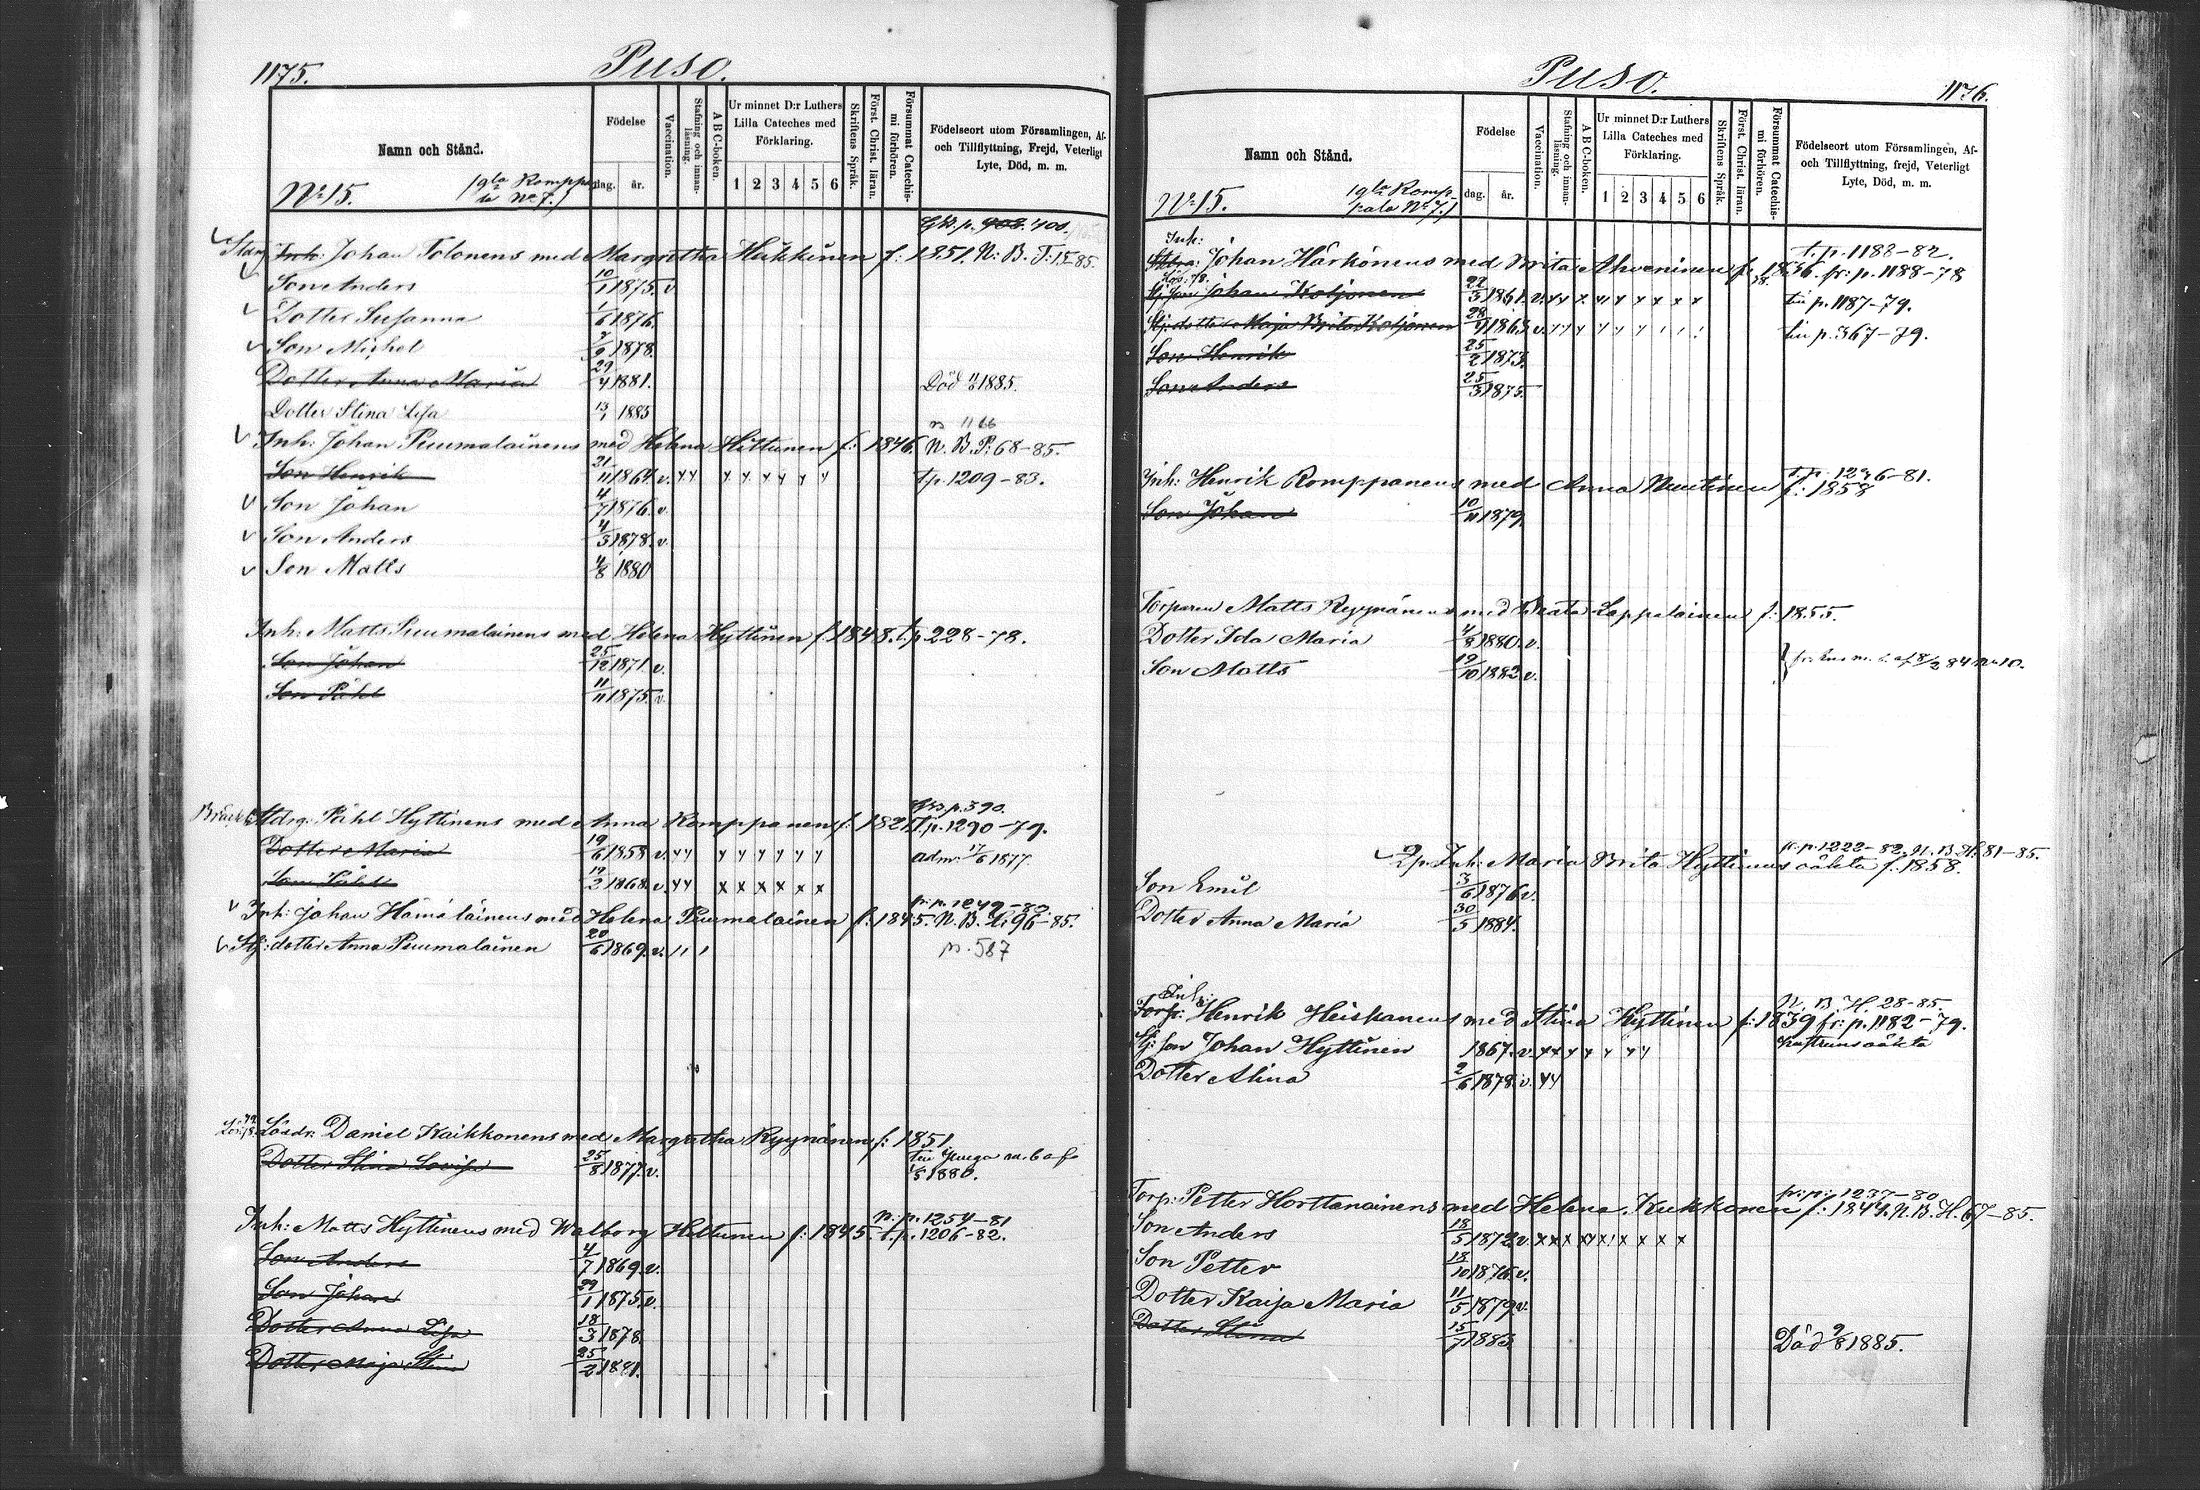 1175.
Puso.
Namn och Stånd.
Födelse
dag. år.
Vaccination.
Stafning och innan-läsning.
ABC-boken.
Ur minnet D:r Luthers Lilla Cateches med Förklaring.
1 2 3 4 5 6
Skriftens Språk.
Först. Christ. läran.
Försummat Catechismi förhören.
Födelseort utom Församlingen, Af-
och Tillflyttning, Frejd, Veterligt
Lyte, Död, m. m.
No 15.
No 7.)
p. 408. 400.
Inh: Johan Tolonens med Margretha Hukkinen f: 1851. N: B. T: 15-85
Son Anders 10/1 1875. v
Dotter Susanna 1/6 1876.
Son Michel 1878.
Dotter Anna Maria 29/4 1881. Död 1885.
Dotter Stina Lisa 13/1 1883
1166
Inh: Johan Puumalainens med Helena Hiltunen f: 1846. N. B. P: 68-85.
Son Henrik 21/11 1864. v. t.p. 1209-83.
Son Johan 4/7 1876. v.
Son Anders 4/5 1878. v.
Son Matts 4/8 1880
Inh: Matts Puumalainens med Helena Hyttinen f. 1848. t.p. 228-78.
Son Johan 25/12 1871. v.
Son Påhl 11/11 1875. v.
p. 390.
Påhl Hyttinens med Anna Romppanen f: 182 T.p. 1290-79.
Dotter Maria 19/6 1858 v. adm. 17/6 1877.
Son Påhl 19/2 1868. v.
fr. p. 1249-82
Inh: Johan Hämäläinens med Helena Puumalainen f: 1845. N. B. H: 96-85.
Stj: dotter Anna Puumalainen 20/6 1869. v. p. 587
Lösdr. Daniel Kaikkonens med Margretha Ryynänen f: 1851
Dotter Stina Lovisa 25/8 1877. v. 1880.
fr. p. 1254-81
Inh: Matts Hyttinens med Walborg Hiltunen f: 1845. t.p. 1206-82.
Son Anders 4/7 1869. v.
Son Johan 29/1 1875. v.
Dotter Anna Lisa 18/3 1878.
Dotter Maja Stina 25/2 1881.
Puso.
1176.
Namn och Stånd.
Födelse
dag. år.
Vaccination.
Stafning och innan-läsning.
ABC-boken.
Ur minnet D:r Luthers Lilla Cateches med Förklaring.
1 2 3 4 5 6
Skriftens Språk.
Först. Christ. läran.
Försummat Catechismi förhören.
Födelseort utom Församlingen, Af-
och Tillflyttning, frejd, Veterligt
Lyte, Död, m. m.
No 15.
No 7.)
t. p. 1183-82.
Inh: Johan Härkönens med Brita Ahveninen f: 1836. fr: p. 1188-78
Stj: son Johan Koljonen 22/3 1861. v. till p. 1187-79.
Stj: dotter Maja Brita Koljonen 28/9 1863. v. till p. 367-79.
Son Henrik 25/2 1873.
Son Anders 25/3 1875.
Inh: Henrik Romppanens med Anna Nuutinen f: 1858
Son Johan 10/11 1879
Torparen Matts Ryynänens med Beata Lappalainen f: 1855.
Dotter Ida Maria 4/8 1880. v.
Son Matts 19/10 1882 v.
fr. p. 1222-82. N. B. H: 81-85.
Inh: Maria Brita Hyttinens oäkta f: 1858.
Son Emil 3/6 1876 v.
Dotter Anna Maria 30/5 1884.
Inh:
N. B. H. 28-85
Torp: Henrik Heiskanens med Stina Hyttinen f: 1839 fr: p. 1182-79.
Stj: son Johan Hyttinen 1867. v. hustruns oäkta
Dotter Alina 2/6 1878. v.
fr: p: 1237-80
Torp: Petter Horttanainens med Helena Kukkonen f: 1844. N. B. H. 67-85.
Son Anders 18/5 1872 v.
Son Petter 18/10 1876. v.
Dotter Kaisa Maria 11/5 1879 v.
Dotter Stina 15/7 1883. Död 9/8 1885.